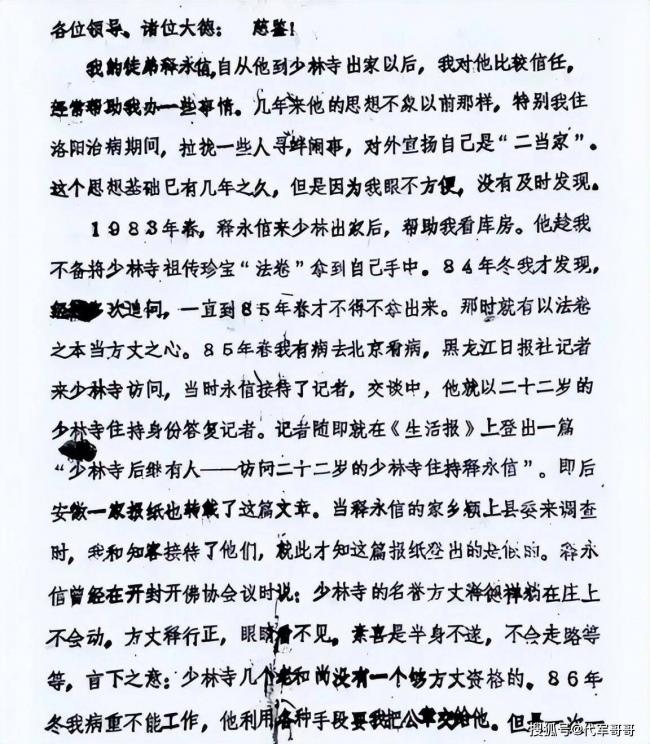 各位领导、诸位大德： 慈鉴！
我的徒弟释永信,自从他到少林寺出家以后，我对他比较信任，
经常帮助我办一些事情。几年来他的思想不象以前那样，特别我住
洛阳治病期间，拉拢一些人寻衅闹事，对外宣扬自己是“二当家”。
这个思想基础已有几年之久，但是因为我眼不方便，没有及时发现。
1983年春，释永信来少林出家后，帮助我看库房。他趁我
不备将少林寺祖传珍宝“法卷”拿到自己手中。84年冬我才发现，
多次追问，一直到85年春才不得不拿出来。那时就有以法卷
之本当方丈之心。85年春我有病去北京看病，黑龙江日报社记者
来少林寺访问，当时永信接待了记者，交谈中，他就以二十二岁的
少林寺住持身份答复记者。记者随即就在《生活报》上登出一篇
“少林寺后继有人——访问二十二岁的少林寺住持释永信”。即后
安徽一家报纸也转载了这篇文章。当释永信的家乡颍上县委来调查
时，我和知客接待了他们，就此才知这篇报纸登出的 释永
信曾经在开封开佛协会议时说：少林寺的名誉方丈 躺在庄上
不会动。方丈释行正，眼睛看不见。素喜是半身不遂，不会走路等
等，言下之意：少林寺几个老和尚没有一个够方丈资格的。86年
冬我病重不能工作，他利用各种手段要我把公章交给他。但
搜狐号@代军哥哥